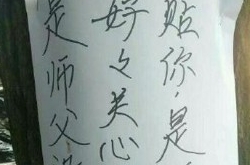 贴你,是
好々关心
是师父